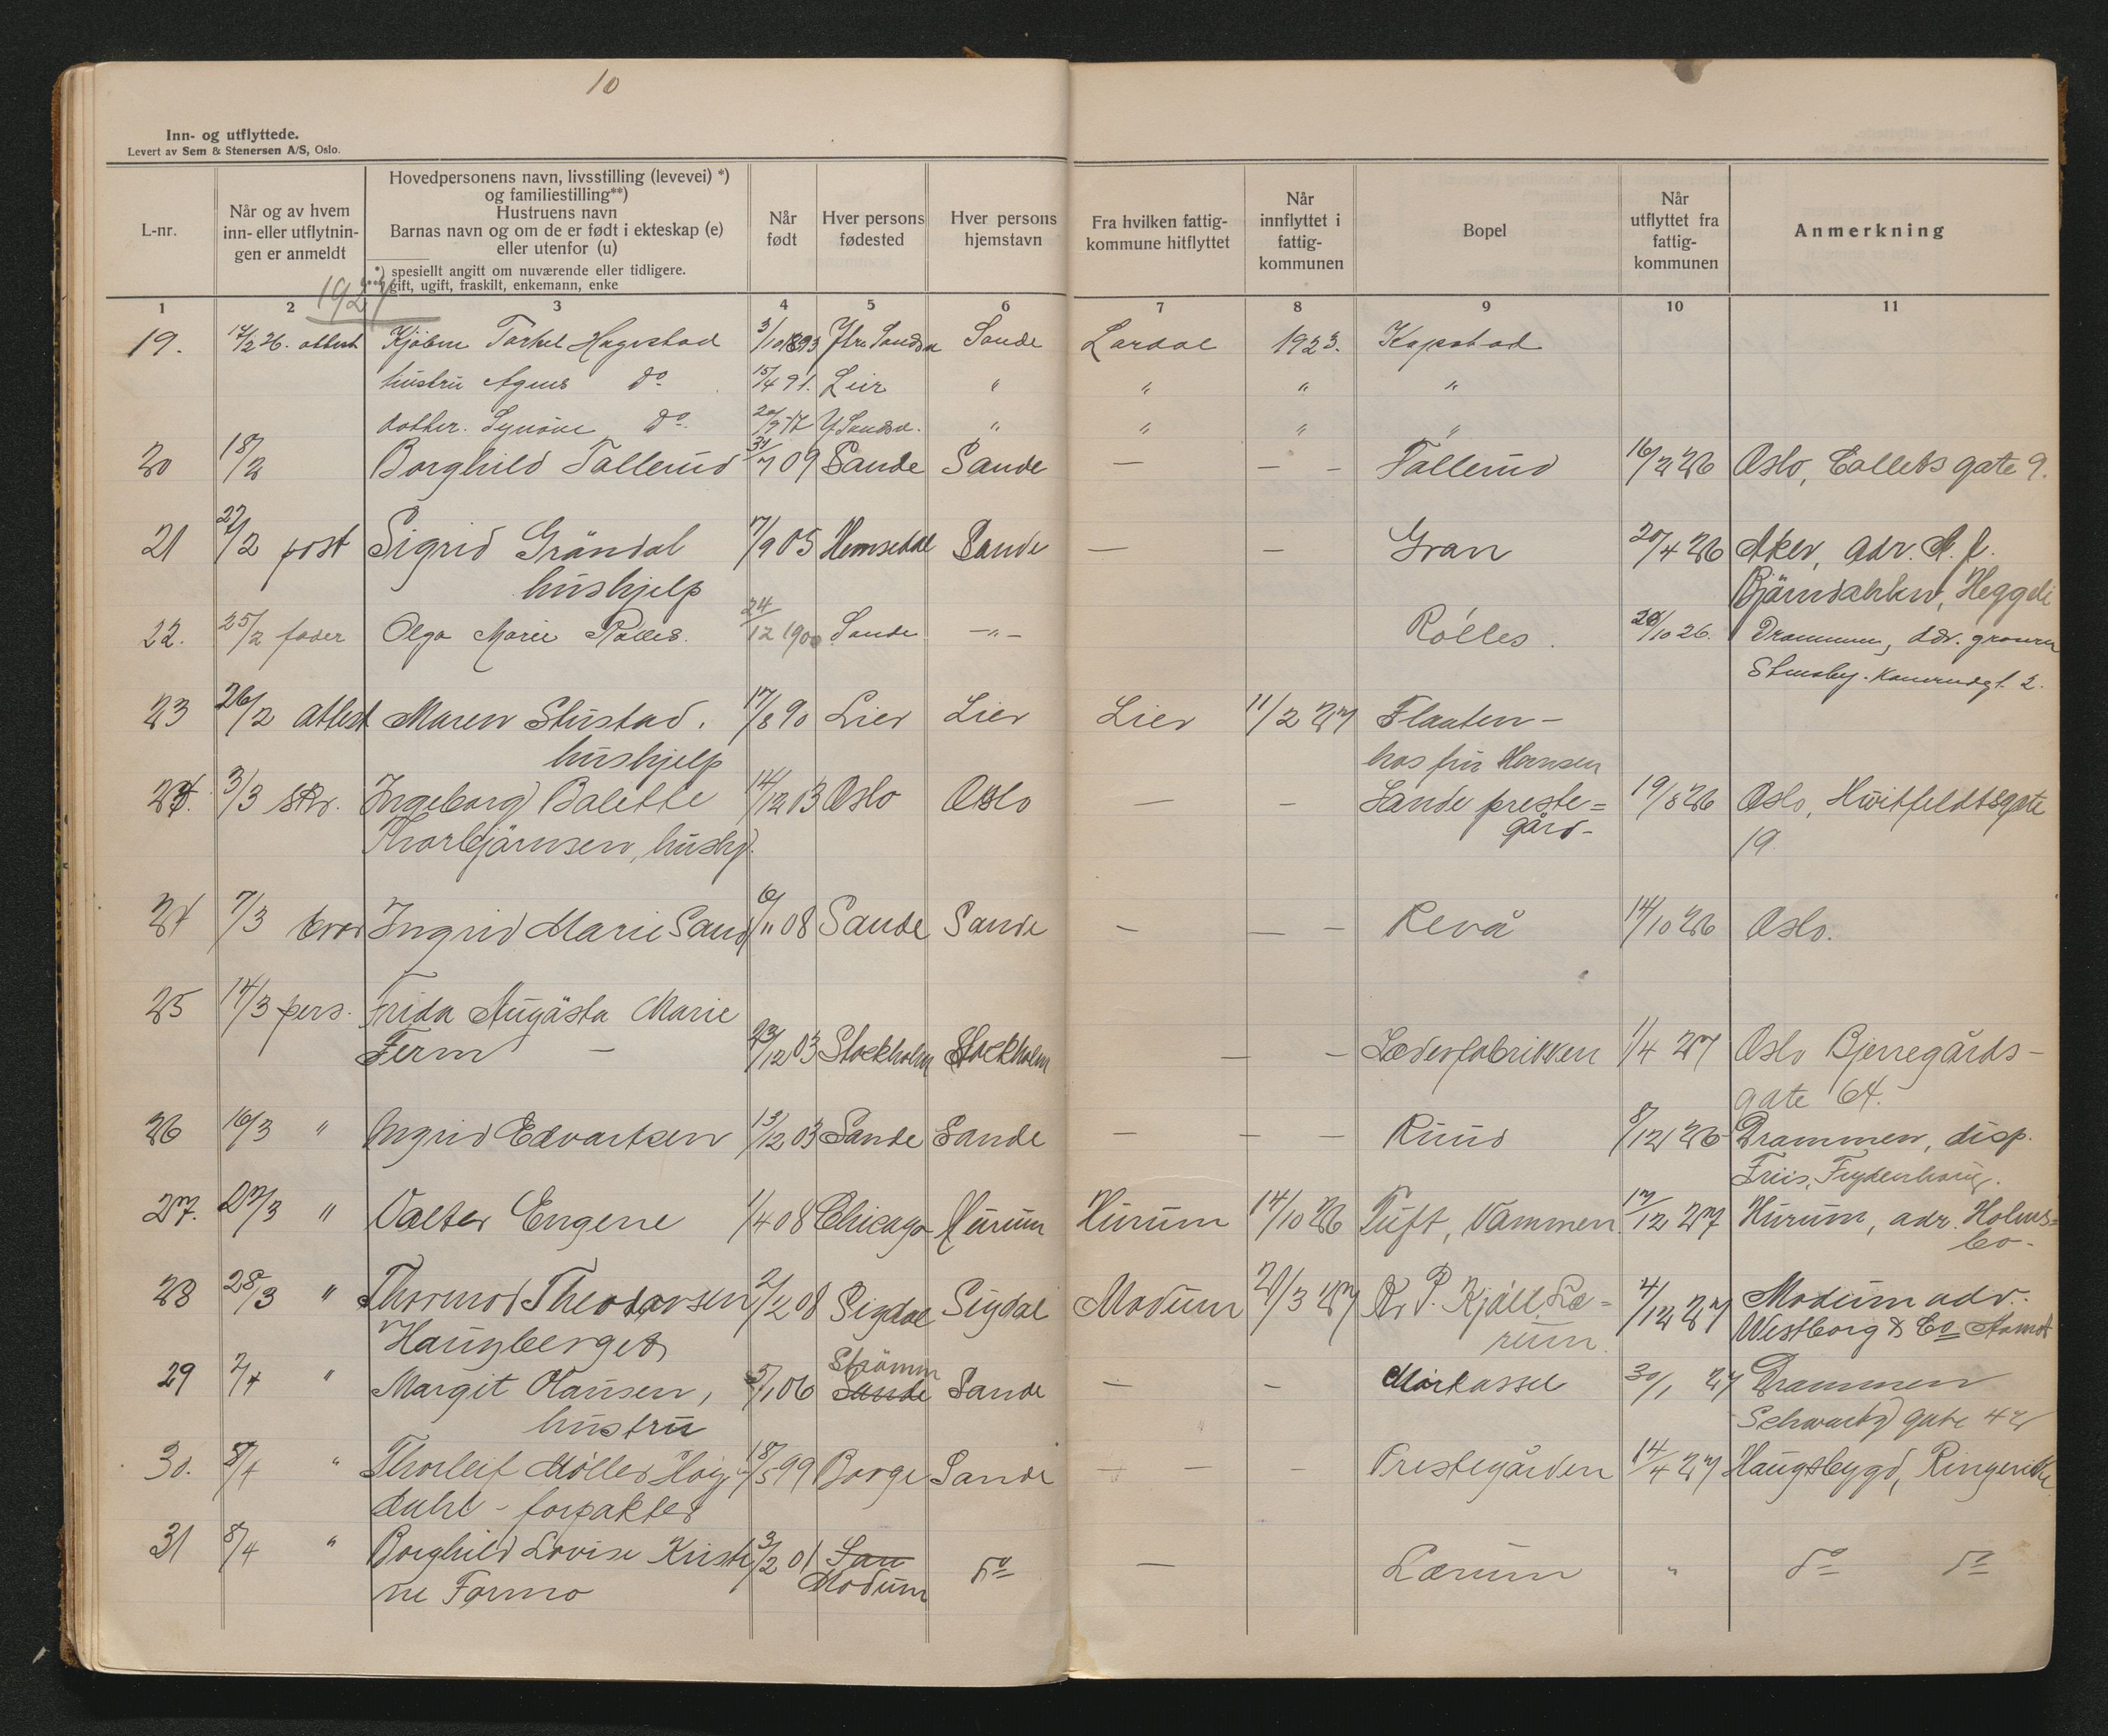 10
Inn- og utflyttede.
Levert av Sem & Stenersen A/S, Oslo.
L-nr.
Når og av hvem
inn- eller utflytnin-
gen er anmeldt
Hovedpersonens navn, livsstilling (levevei) *)
og familiestilling**)
Hustruens navn
Barnas navn og om de er født i ekteskap (e)
eller utenfor (u)
*) spesiellt angitt om nuværende eller tidligere.
**) gift, ugift, fraskilt, enkemann, enke
Når
født
Hver persons
fødested
Hver persons
hjemstavn
Fra hvilken fattig-
kommune hitflyttet
Når
innflyttet i
fattig-
kommunen
Bopel
Når
utflyttet fra
fattig-
kommunen
Anmerkning
1 2 3 4 5 6 7 8 9 10 11
1927
19. 14/2 26. attest Kjöbm Torkel Hagestad 3/10 1893 Sande Lardal 1923. Kopstad
hustru Agnes do 15/4 91. Lier " " " "
datter. Synöve do. 20/9 17 Y Sandsv. " " " "
20 18/2 Borghild Tallerud 31/7 09 Sande Sande — — — Tallerud 16/2 26 Oslo, Colletts gate 9.
21 22/2 post Sigrid Gröndal 7/9 05 Hemsedal Sande — — Gran 20/4 26 Aker, adr. A. f.
hushjelp Bjørndahlen, Heggeli
22. 25/2 fader Olga Marie Rölles. 24/12 1900 Sande —"— Rölles. 26/10 26. Drammen, adr.
Stensby.
23 26/2 attest Maren Stustad. 17/8 90 Lier Lier Lier 11/2 27 Flaaten -
hushjelp hos fru Hansen
24. 3/3 skr. Ingeborg Balette 14/12 03 Oslo Oslo — — Sande preste= 19/8 26 Oslo, Hvitfeldtsgate
Thorbjörnsen, hushj. gård- 19
24 7/3 Ingrid Marie Sand 6/11 08 Sande Sande — — — Revå 14/10 26 Oslo.
25 14/3 pers. Frida Augästa Marie
Ferm — 23/12 03 Stockholm Stockholm — — Læderfabrikken 1/4 27 Oslo Bjerregårds-
gate 64.
26 16/3 " Ingrid Edvartsen 13/12 03 Sande Sande — — — Ruud 8/12 26 Drammen, disp.
Friis, Frydenhaug.
27. 22/3 " Valter Engene 1/4 08 Chicago Hurum Hurum 14/10 26 Tuft, Vammen 17/12 27 Hurum, adr. Holms=
bo-
28 28/3 " Thormod Theodorsen 2/2 08 Sigdal Sigdal Modum 21/3 27 Kr P. Kjøll, Læ= 4/12 27 Modum adr.
Haugberget rum. Westborg & Co Aamot
29 2/4 " Margit Olausen, 5/1 06 Strömm Sande Sande — — Mörkassel 30/1 27 Drammen
hustru Schwartz gate 42
30. 8/4 " Thorleif Möller Höig 18/5 99 Borge Sande — — — Prestegården 14/4 27 Haugsbygd, Ringerike
dahl - forpakter
31 8/4 " Borghild Lovise Kristi 3/2 01 San do — Lærum " do do
ne Formo Modum